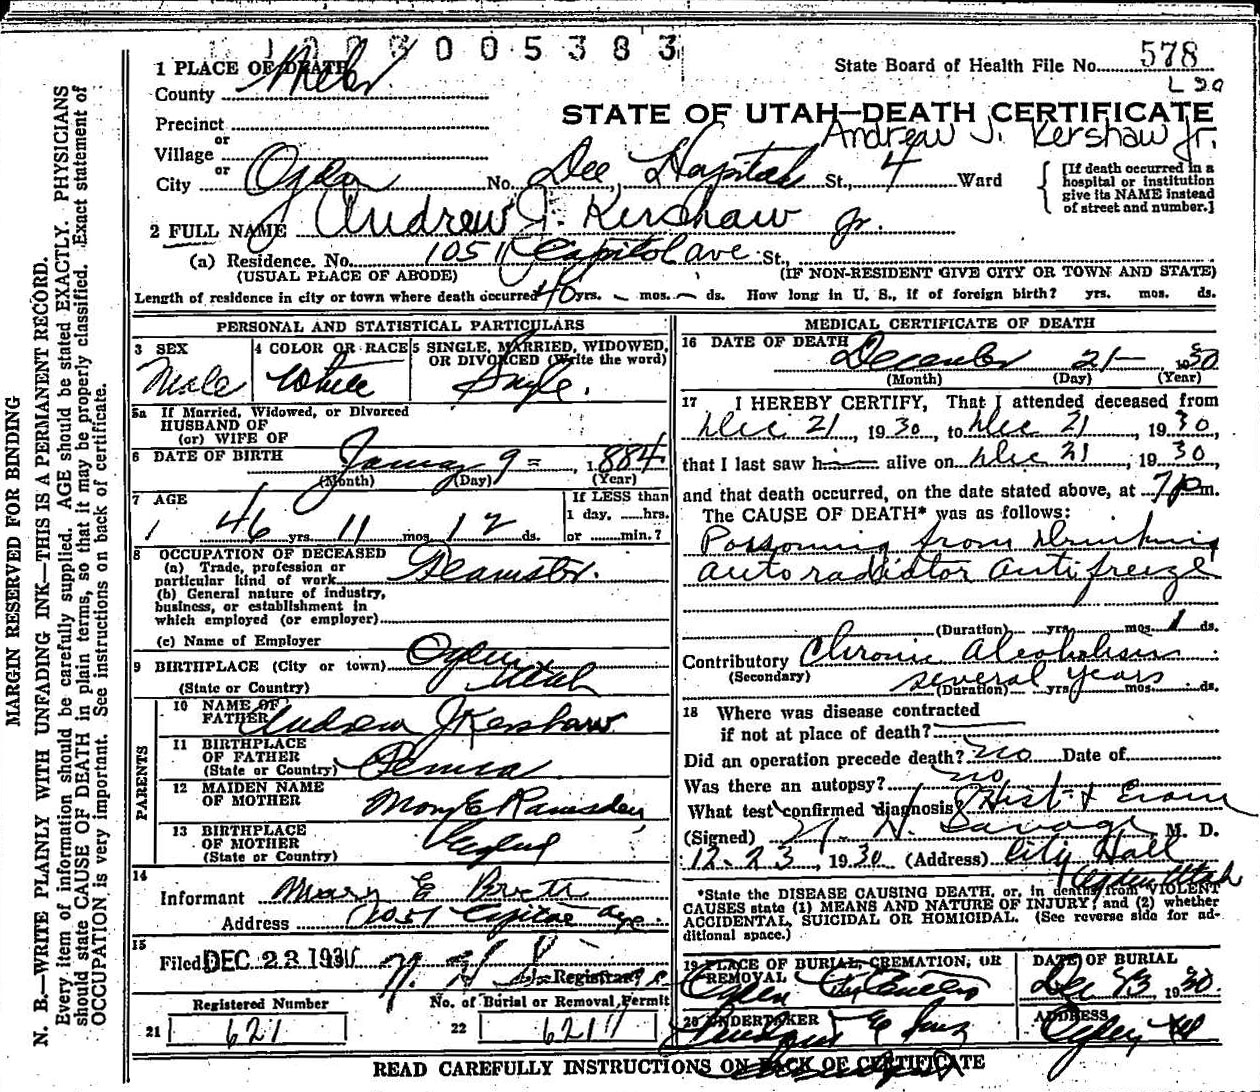 005383
1 PLACE OF DEATH
State Board of Health File No. 578
County Weber
L 20
STATE OF UTAH—DEATH CERTIFICATE
Precinct
Andrew J. Kershaw Jr.
or
Village
or
City Ogden No. Dee Hospital St., 4 Ward
[If death occurred in a
hospital or institution
give its NAME instead
of street and number.]
2 FULL NAME Andrew J. Kershaw Jr.
(a) Residence. No. 1051 Capitol ave St.,
(USUAL PLACE OF ABODE) (IF NON-RESIDENT GIVE CITY OR TOWN AND STATE)
Length of residence in city or town where death occurred 46 yrs. - mos. - ds. How long in U. S., if of foreign birth? yrs. mos. ds.
PERSONAL AND STATISTICAL PARTICULARS
3 SEX
Male
4 COLOR OR RACE
White
5 SINGLE, MARRIED, WIDOWED,
OR DIVORCED (Write the word)
Single.
5a If Married, Widowed, or Divorced
HUSBAND OF
(or) WIFE OF
6 DATE OF BIRTH January 9 = 1884
(Month) (Day) (Year)
7 AGE
46 yrs. 11 mos. 12 ds.
If LESS than
1 day, hrs.
or min.?
8 OCCUPATION OF DECEASED
(a) Trade, profession or
particular kind of work Teamster.
(b) General nature of industry,
business, or establishment in
which employed (or employer)
(c) Name of Employer
9 BIRTHPLACE (City or town) Ogden
(State or Country) Utah
PARENTS
10 NAME OF
FATHER Andrew J Kershaw
11 BIRTHPLACE
OF FATHER
(State or Country)
12 MAIDEN NAME
OF MOTHER Mary E Ramsden
13 BIRTHPLACE
OF MOTHER
(State or Country) England
14
Informant Mary E
Address 1051 Capitol Ave.
15
Filed DEC 23 1930 Registrar
Registered Number
21 621
No. of Burial or Removal Permit
22 621
MEDICAL CERTIFICATE OF DEATH
16 DATE OF DEATH
December 21- 1930
(Month) (Day) (Year)
17 I HEREBY CERTIFY, That I attended deceased from
Dec 21, 1930, to Dec 21, 1930,
that I last saw h alive on Dec 21, 1930
and that death occurred, on the date stated above, at 7 p m.
The CAUSE OF DEATH* was as follows:
Poisoning from Drinking
auto radiator antifreeze
(Duration) yrs. mos. 1 ds.
Contributory Chronic Alcoholism
(Secondary)
several years
(Duration) yrs. mos. ds.
18 Where was disease contracted
if not at place of death?
Did an operation precede death? no Date of
Was there an autopsy? no
What test confirmed diagnosis? Hist + Exam
(Signed) H. Savage M. D.
12-23, 1930 (Address) City Hall
Ogden Utah
*State the DISEASE CAUSING DEATH, or, in deaths from VIOLENT
CAUSES state (1) MEANS AND NATURE OF INJURY; and (2) whether
ACCIDENTAL, SUICIDAL OR HOMICIDAL. (See reverse side for ad-
ditional space.)
19 PLACE OF BURIAL, CREMATION, OR
REMOVAL
Ogden City
DATE OF BURIAL
Dec 23 1930.
20 UNDERTAKER
ADDRESS
Ogden
READ CAREFULLY INSTRUCTIONS ON BACK OF CERTIFICATE
MARGIN RESERVED FOR BINDING
N. B.—WRITE PLAINLY WITH UNFADING INK—THIS IS A PERMANENT RECORD.
Every item of information should be carefully supplied. AGE should be stated EXACTLY. PHYSICIANS
should state CAUSE OF DEATH in plain terms, so that it may be properly classified. Exact statement of
OCCUPATION is very important. See instructions on back of certificate.